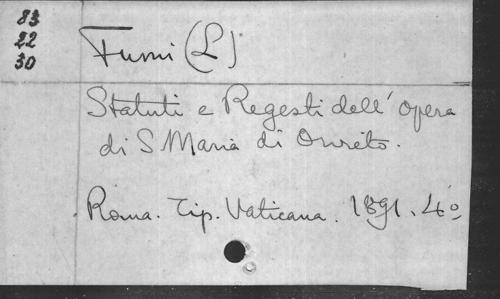 83
22
30
Fumi (L)
Statuti e Regesti dell' opera
di S Maria di Orvieto.
Roma. Tip. Vaticana. 1891. 4º